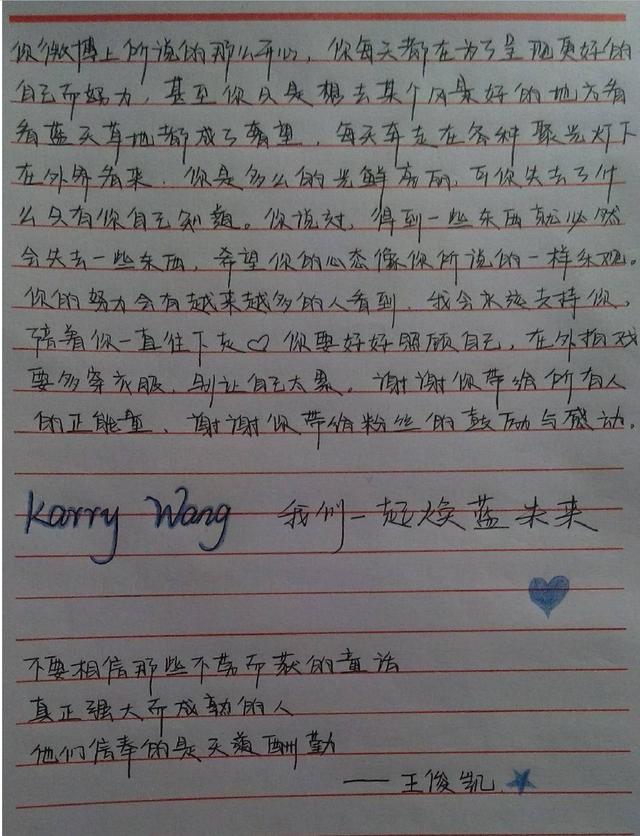 你微博上所说的那么开心，你每天都在为了呈现更好的
自己而努力，甚至你只是想去某个风景好的地方看
看蓝天草地都成了奢望，每天奔走在各种聚光灯下
在外界看来，你是多么的光鲜亮丽，可你失去了什
么只有你自己知道。你说过，得到一些东西就必然
会失去一些东西，希望你的心态像你所说的一样乐观。
你的努力会有越来越多的人看到，我会永远支持你，
陪着你一直往下走♡你要好好照顾自己，在外拍戏
要多穿衣服，别让自己太累。谢谢你带给所有人
的正能量，谢谢你带给粉丝的鼓励与感动。
Karry Wang 我们一起焕蓝未来
不要相信那些不劳而获的童话
真正强大而成熟的人
他们信奉的是天道酬勤
——王俊凯